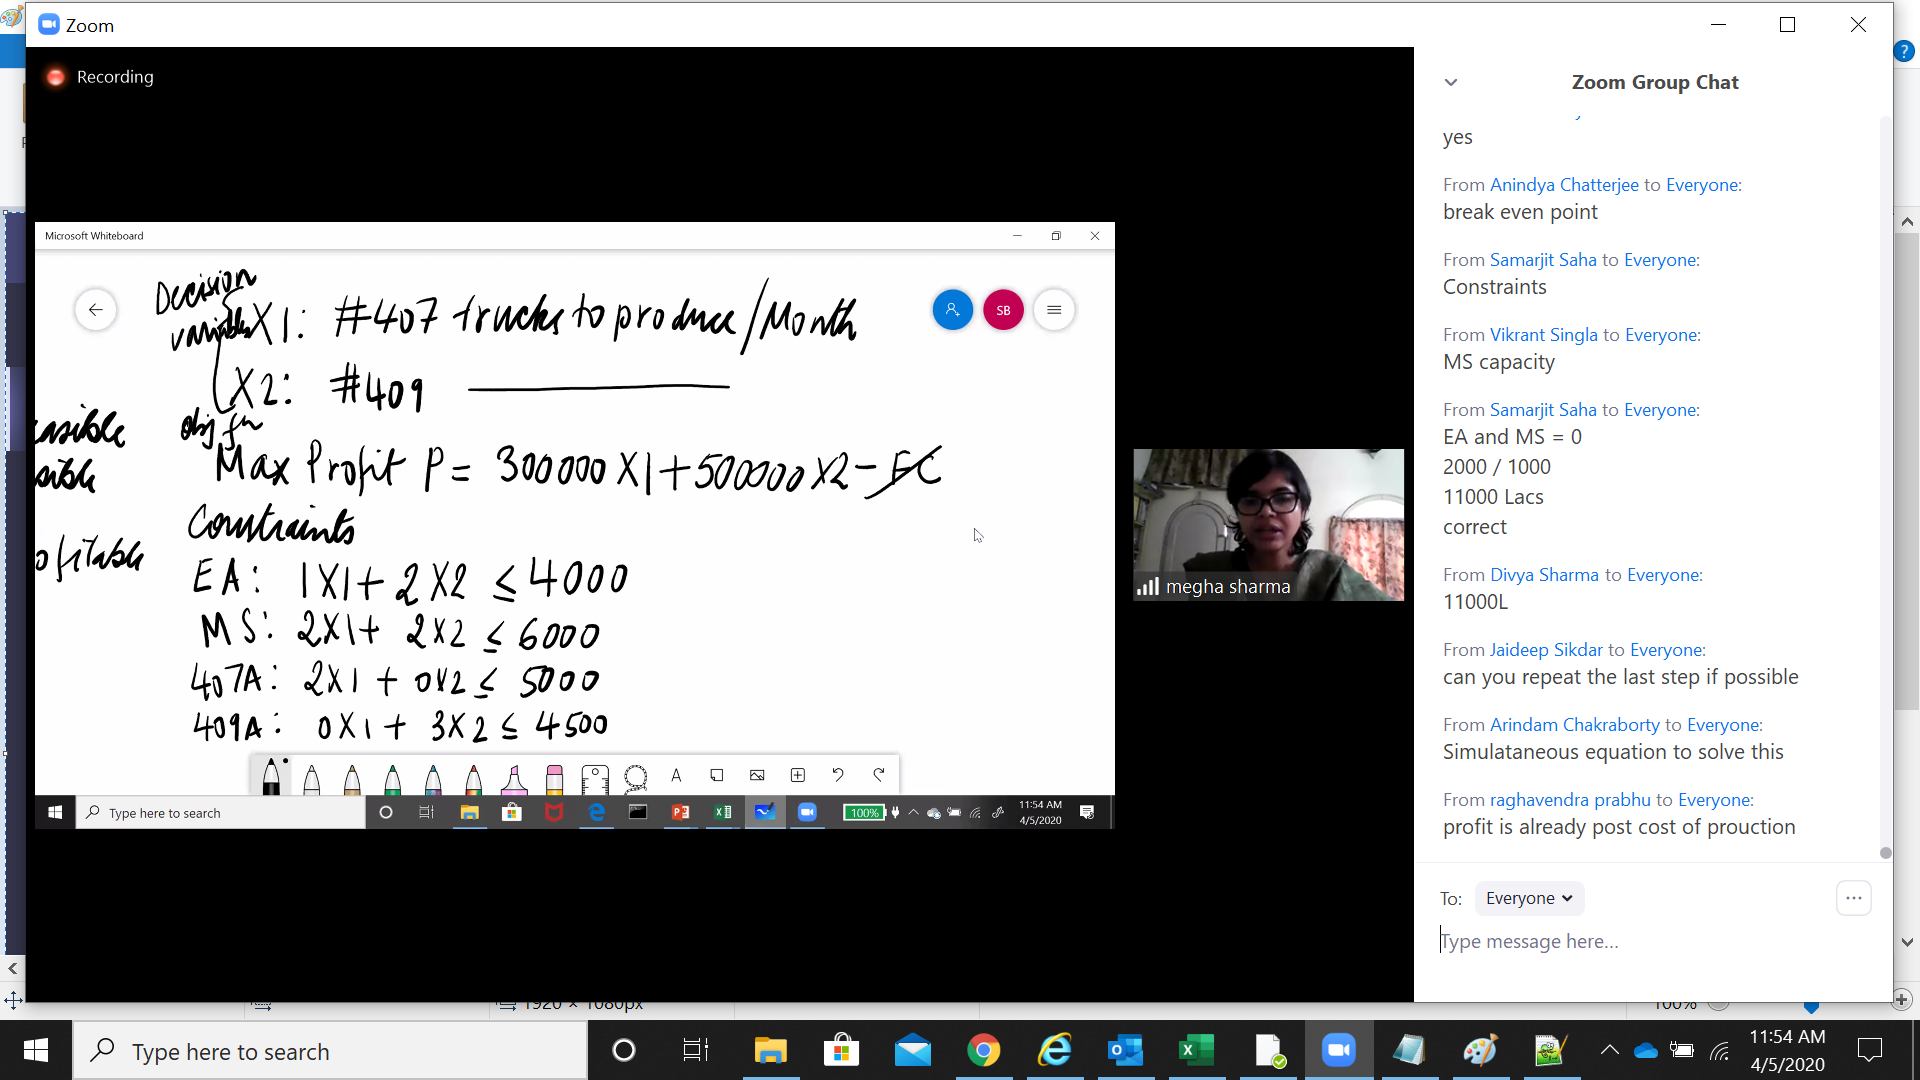 Zoom
Recording
Microsoft Whiteboard
Decision
variables X1: #407 trucks to produce/Month
X2: #409
obj fn
Max Profit P= 300000 X1+500000 X2 - FC
Constraints
EA: 1X1+ 2X2 ≤ 4000
MS: 2X1+ 2X2 ≤ 6000
407A: 2X1 + 0X2 ≤ 5000
409A: 0X1 + 3X2 ≤ 4500
easible
sible
ofitable
SB
A
Type here to search
100%
11:54 AM
4/5/2020
megha sharma
Zoom Group Chat
yes
From Anindya Chatterjee to Everyone:
break even point
From Samarjit Saha to Everyone:
Constraints
From Vikrant Singla to Everyone:
MS capacity
From Samarjit Saha to Everyone:
EA and MS = 0
2000 / 1000
11000 Lacs
correct
From Divya Sharma to Everyone:
11000L
From Jaideep Sikdar to Everyone:
can you repeat the last step if possible
From Arindam Chakraborty to Everyone:
Simulataneous equation to solve this
From raghavendra prabhu to Everyone:
profit is already post cost of prouction
To: Everyone
Type message here...
1920 × 1080px
100%
Type here to search
11:54 AM
4/5/2020